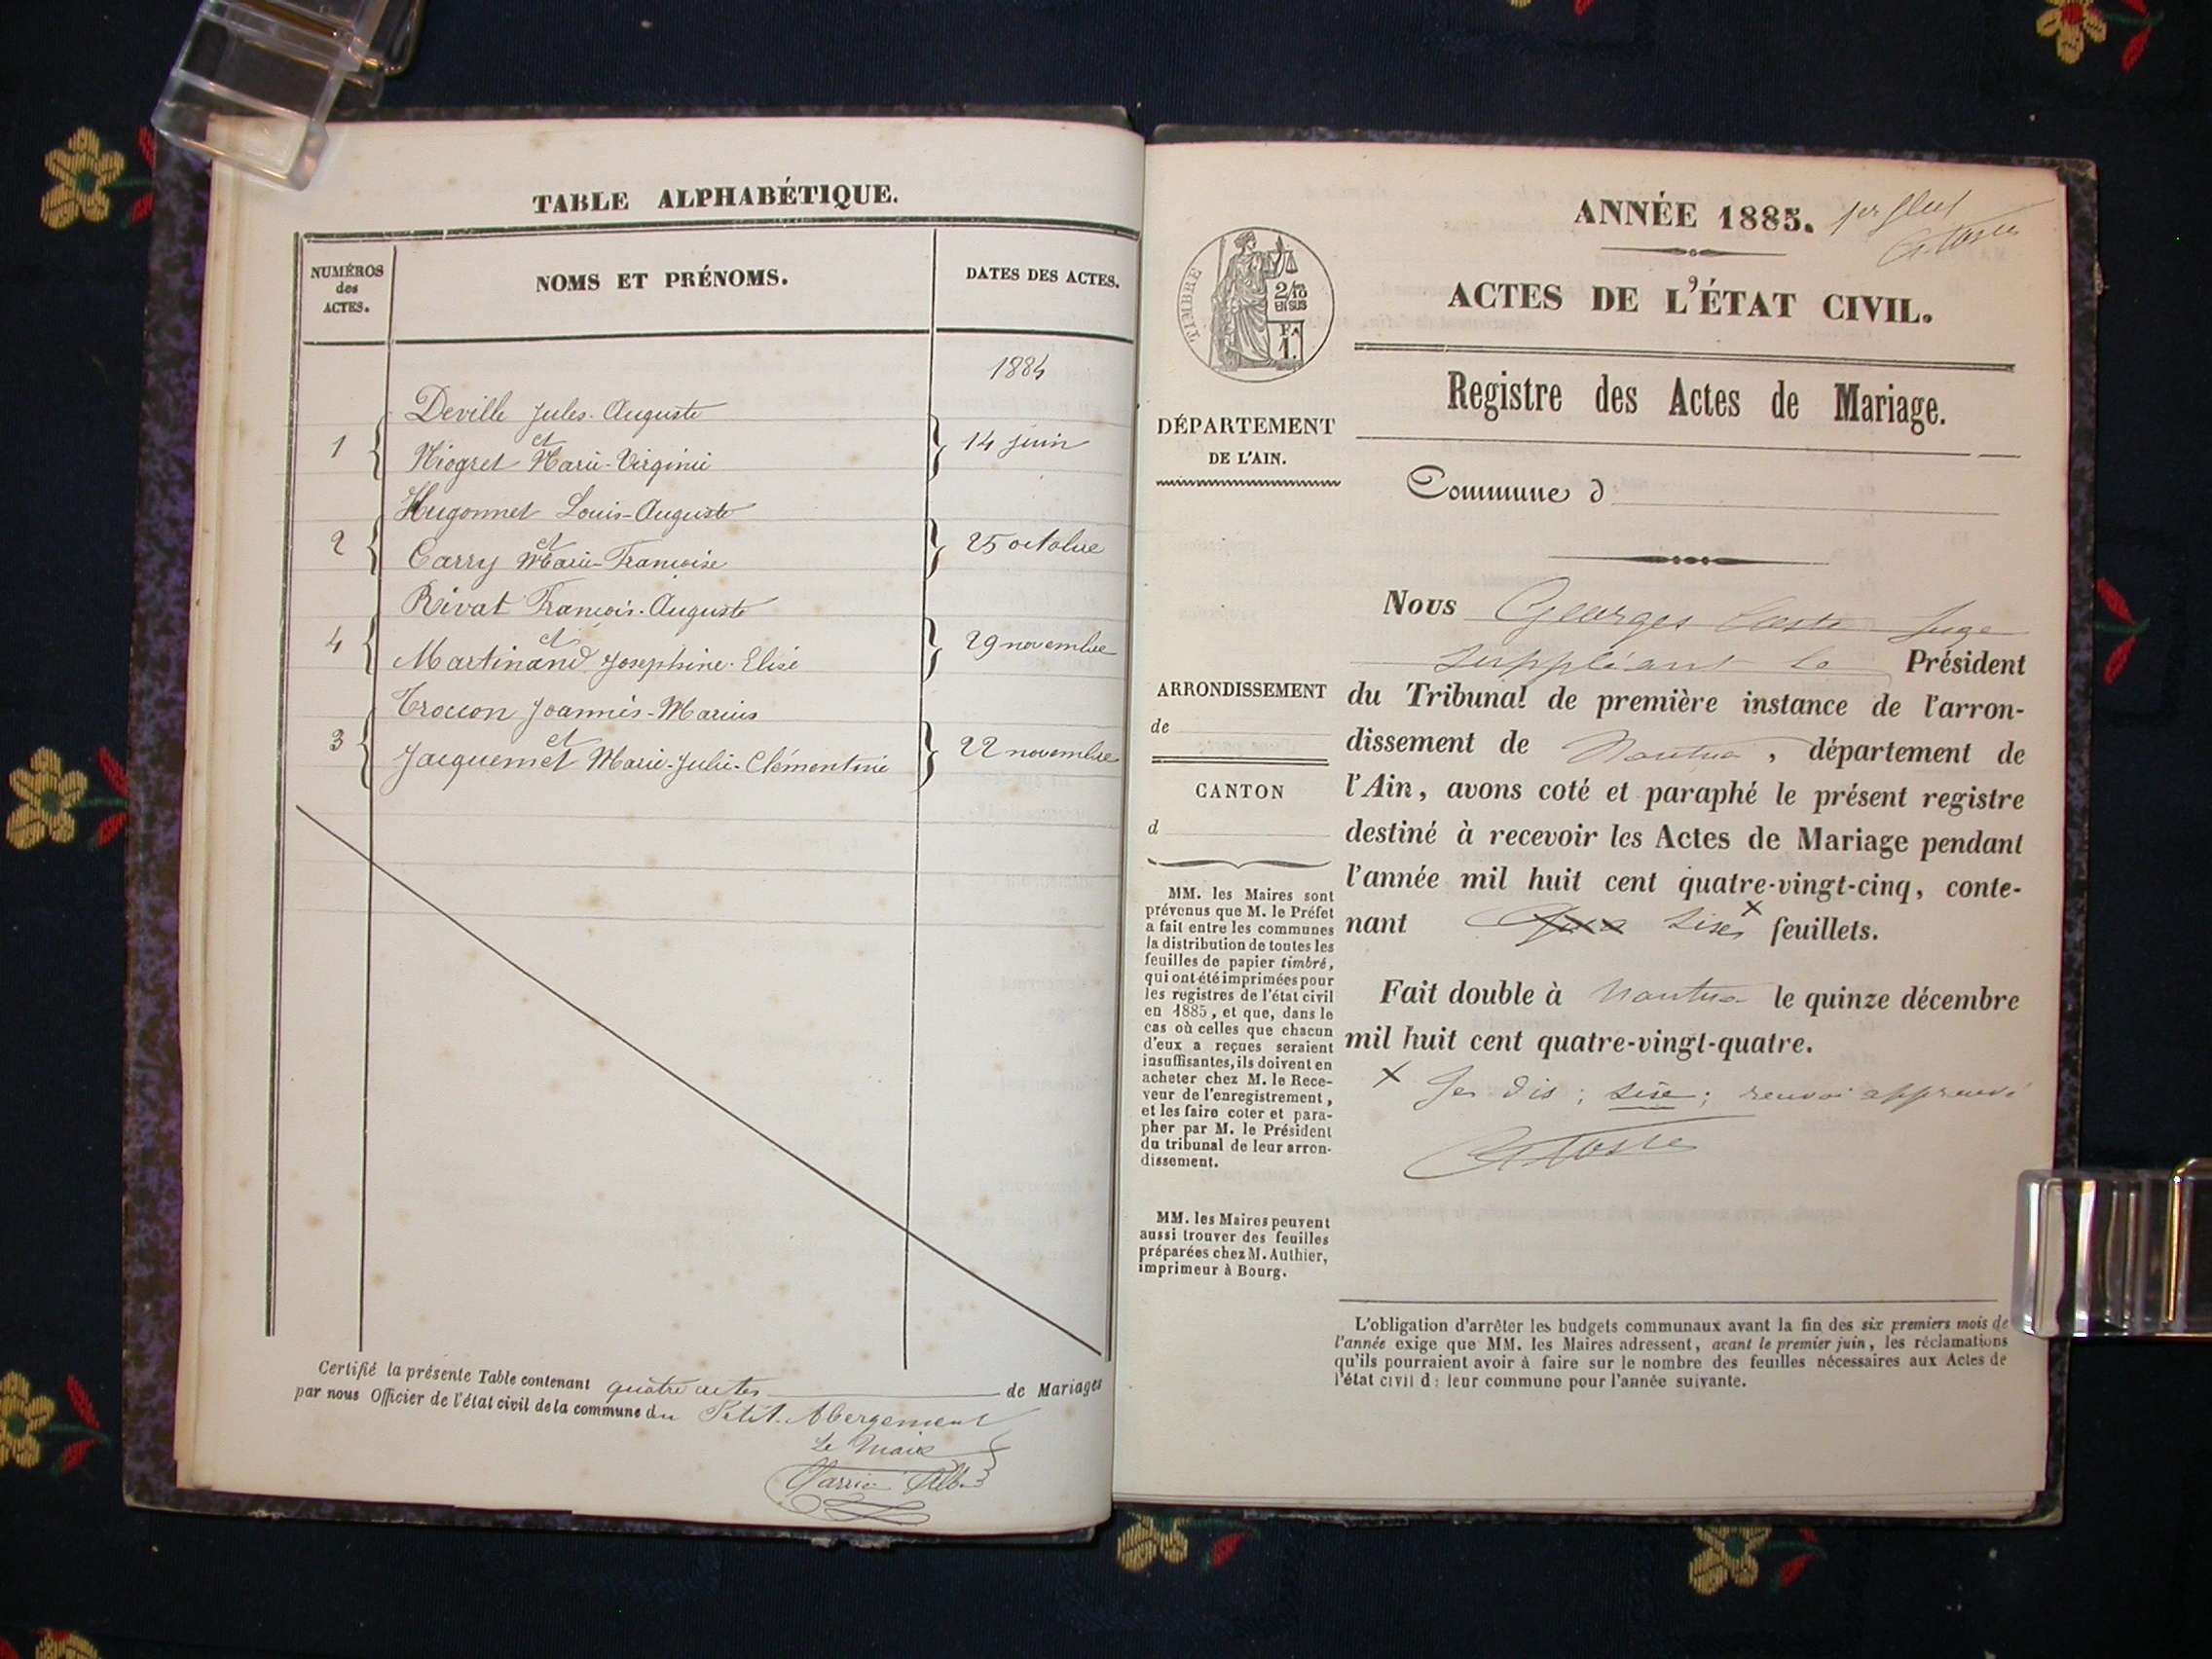 TABLE ALPHABÉTIQUE.
NUMÉROS
des
ACTES.
NOMS ET PRÉNOMS.
DATES DES ACTES.
1884
Deville Jules-Auguste
1 et 14 juin
Niogret Marie-Virginie
Hugonnet Louis-Auguste
2 et 25 octobre
Carry Marie-Françoise
Rivat François-Auguste
4 et 29 novembre
Martinand Josephine-Elise
Troccon Joannès-Marius
3 et 22 novembre
Jacquemet Marie-Julie-Clémentine
Certifié la présente Table contenant quatre actes de Mariages
par nous Officier de l'état civil de la commune du Petit-Abergement
Le Maire
ANNÉE 1885. 1er
TIMBRE
2/10
EN SUS
1.
ACTES DE L'ÉTAT CIVIL.
Registre des Actes de Mariage.
DÉPARTEMENT
DE L'AIN.
Commune d
ARRONDISSEMENT
de
CANTON
d
MM. les Maires sont
prévenus que M. le Préfet
a fait entre les communes
la distribution de toutes les
feuilles de papier timbré,
qui ont été imprimées pour
les registres de l'état civil
en 1885, et que, dans le
cas où celles que chacun
d'eux a reçues seraient
insuffisantes, ils doivent en
acheter chez M. le Rece-
veur de l'enregistrement,
et les faire coter et para-
pher par M. le Président
du tribunal de leur arron-
dissement.
MM. les Maires peuvent
aussi trouver des feuilles
préparées chez M. Authier,
imprimeur à Bourg.
Nous Georges Juge
suppléant le Président
du Tribunal de première instance de l'arron-
dissement de Nantua, département de
l'Ain, avons coté et paraphé le présent registre
destiné à recevoir les Actes de Mariage pendant
l'année mil huit cent quatre-vingt-cinq, conte-
nant feuillets.
Fait double à Nantua le quinze décembre
mil huit cent quatre-vingt-quatre.
renvoi approuvé
L'obligation d'arrêter les budgets communaux avant la fin des six premiers mois de
l'année exige que MM. les Maires adressent, avant le premier juin, les réclamations
qu'ils pourraient avoir à faire sur le nombre des feuilles nécessaires aux Actes de
l'état civil de leur commune pour l'année suivante.